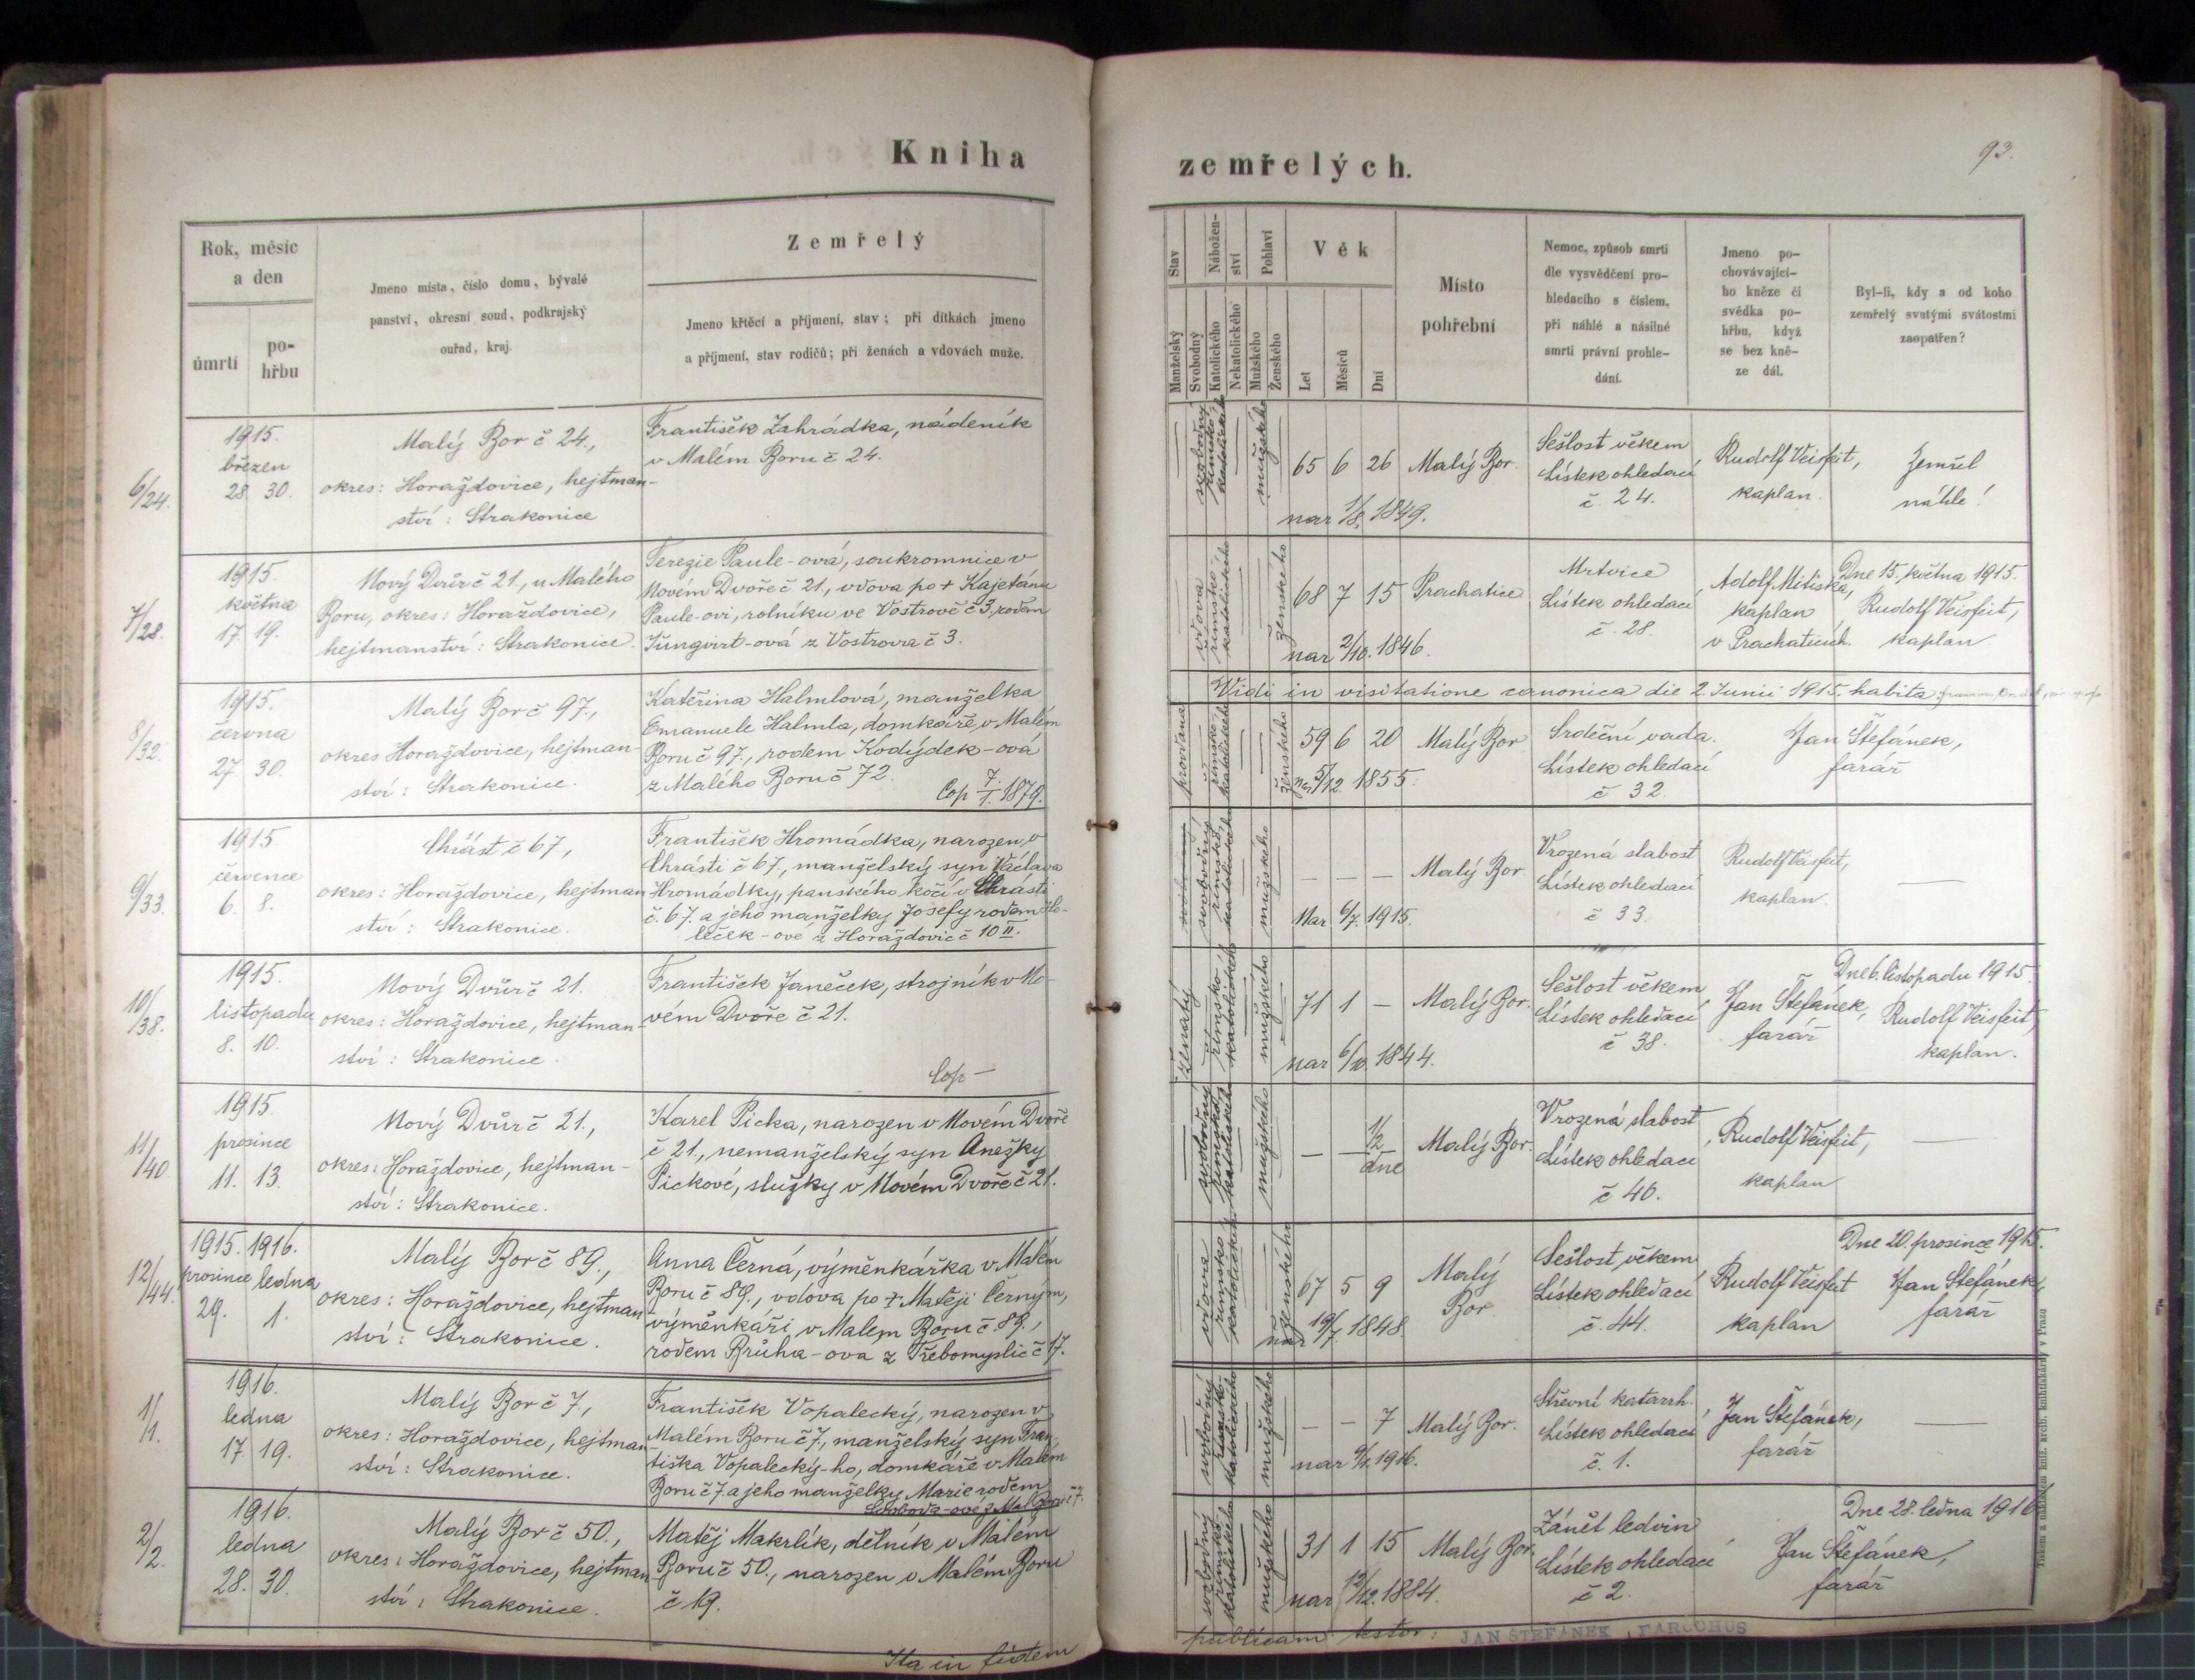 Kniha
zemřelých.
93.
Rok, měsíc
a den
úmrtí
po-
hřbu
Jmeno místa, číslo domu, bývalé
panství, okresní soud, podkrajský
ouřad, kraj.
Zemřelý
Jmeno křtěcí a příjmení, stav; při dítkách jmeno
a příjmení, stav rodičů; při ženách a vdovách muže.
Stav
Manželský
Svobodný
Nábožen-
ství
Katolického
Nekatolického
Pohlaví
Mužského
Ženského
Věk
Let
Měsíců
Dní
Místo
pohřební
Nemoc, způsob smrti
dle vysvědčení pro-
hledacího s číslem,
při náhlé a násilné
smrti právní prohle-
dání.
Jmeno po-
chovávající-
ho kněze či
svědka po-
hřbu, když
se bez kně-
ze dál.
Byl-li, kdy a od koho
zemřelý svatými svátostmi
zaopatřen?
6/24.
1915.
březen
28. 30.
Malý Bor č 24.,
okres: Horažďovice, hejtman-
ství: Strakonice
František Zahrádka, nádeník
v Malém Boru č 24.
svobodný
římsko-
katolického
mužského
65 6 26
nar 1/8. 1849.
Malý Bor.
Sešlost věkem
Lístek ohledací
č. 24.
Rudolf Veisfeit,
kaplan.
Zemřel
náhle!
7/28.
1915.
května
17. 19.
Nový Dvůr č 21., u Malého
Boru, okres: Horažďovice,
hejtmanství: Strakonice.
Terezie Paule-ová, soukromnice v
Novém Dvoře č 21., vdova po + Kajetánu
Paule-ovi, rolníku ve Vostrově č 3, rodem
Jungvirt-ová z Vostrova č 3.
vdova
římsko-
katolického
ženského
68 7 15
nar 2/10. 1846.
Prachatice
Mrtvice
Lístek ohledací
č. 28.
Adolf Mitiska,
kaplan
v Prachaticích.
Dne 15. května 1915.
Rudolf Veisfeit,
kaplan
Vidi in visitatione canonica die 2. Junii 1915. habita
8/32.
1915.
června
27. 30.
Malý Bor č 97.,
okres Horažďovice, hejtman-
ství: Strakonice.
Kateřina Halmlová, manželka
Emanuele Halmla, domkáře v Malém
Boru č 97., rodem Kodýdek-ová
z Malého Boru č 72.
Cop 7./1. 1879.
provdaná
římsko-
katolického
ženského
59 6 20
nar 5/12 1855.
Malý Bor
Srdeční vada.
Lístek ohledací
č 32.
Jan Štefánek,
farář
9/33.
1915.
července
6. 8.
Chrást č 67,
okres: Horažďovice, hejtman-
ství: Strakonice.
František Hromádka, narozen v
Chrásti č 67., manželský syn Václava
Hromádky, panského kočí v Chrásti
č. 67. a jeho manželky Josefy rodem Ho-
leček-ové z Horažďovic č 10 II.
svobodný
římsko-
katolického
mužského
— — —
Nar 6/7. 1915.
Malý Bor
Vrozená slabost
Lístek ohledací
č 33.
Rudolf Veisfeit,
kaplan.
—
10/38.
1915.
listopadu
8. 10.
Nový Dvůr č 21.
okres: Horažďovice, hejtman-
ství: Strakonice.
František Janeček, strojník v No-
vém Dvoře č 21.
Cop —
ženatý
římsko-
katolického
mužského
71 1 —
nar 6/10. 1844.
Malý Bor.
Sešlost věkem
Lístek ohledací
č 38.
Jan Štefánek,
farář
Dne 6. listopadu 1915.
Rudolf Veisfeit,
kaplan.
11/40
1915.
prosince
11. 13.
Nový Dvůr č 21.,
okres: Horažďovice, hejtman-
ství: Strakonice.
Karel Picka, narozen v Novém Dvoře
č 21., nemanželský syn Anežky
Pickové, služky v Novém Dvoře č 21.
svobodný
římsko-
katolického
mužského
— — 1/2
dne
Malý Bor.
Vrozená slabost
Lístek ohledací
č 40.
Rudolf Veisfeit,
kaplan
—
12/44.
1915. 1916.
prosince ledna
29. 1.
Malý Bor č 89.,
okres: Horažďovice, hejtman-
ství: Strakonice.
Anna Černá, výměnkářka v Malém
Boru č 89., vdova po + Matěji Černým,
výměnkáři v Malém Boru č. 89.,
rodem Brůha-ova z Třebomyslic č 17.
vdova
římsko-
katolického
ženského
67 5 9
nar 19/7. 1848.
Malý
Bor
Sešlost věkem
Lístek ohledací
č. 44.
Rudolf Veisfeit
kaplan
Dne 20. prosince 1915.
Jan Štefánek,
farář
1/1.
1916.
ledna
17. 19.
Malý Bor č 7,
okres: Horažďovice, hejtman-
ství: Strakonice.
František Vopalecký, narozen v
Malém Boru č 7., manželský syn Fran-
tiška Vopalecký-ho, domkáře v Malém
Boru č 7. a jeho manželky Marie rodem
Svoboda-ové z Mal. Boru č 7.
svobodný
římsko-
katolického
mužského
— — 7
nar 9/1. 1916.
Malý Bor.
Střevní katarrh.
Lístek ohledací
č. 1.
Jan Štefánek,
farář
—
2/2.
1916.
ledna
28. 30.
Malý Bor č 50.,
okres: Horažďovice, hejtman-
ství: Strakonice.
Matěj Makrlík, dělník v Malém
Boru č 50., narozen v Malém Boru
č 19.
svobodný
římsko-
katolického
mužského
31 1 15
nar 13/12. 1884.
Malý Bor.
Zánět ledvin
Lístek ohledací
č 2.
Jan Štefánek,
farář
Dne 28. ledna 1916
Ita in fidem
publicam testor: JAN ŠTEFÁNEK, PAROCHUS
Tiskem a nákladem kníž. arcib. knihtiskárny v Praze